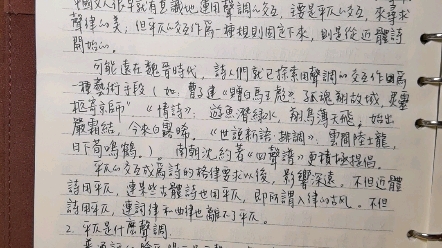 中國文人很早就有意識地運用聲調的交互，主要是平仄的交互，來尋求
聲律的美，但平仄的交互作為一種規則固定下來，則是從近體詩
開始的。
可能遠在魏晉時代，詩人們就已探索用聲調的交互作為
一種藝術手段（如，曹子建《贈白馬王彪》：孤魂翔故城，靈柩
寄京師“《情詩》：遊魚潛綠水，翔鳥薄天飛。始出
嚴霜結，今來白露晞。《世說新語·排調》：雲間陸士龍，
日下荀鳴鶴。）南朝沈約著《四聲譜》更積極提倡。
平仄的交互成為詩的格律要求以後，影響深遠。不但近體
詩用平仄，連某些古體詩也用平仄，即所謂入律的古風。不但
詩用平仄，連詞律和曲律也離不了平仄。
2. 平仄是什麼聲調